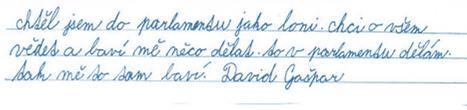 chtěl jsem do parlamentu jako loni. chci o všem
vědet a baví mě něco dělat. to v parlamentu dělám.
tak mě to tam baví. David Gašpar